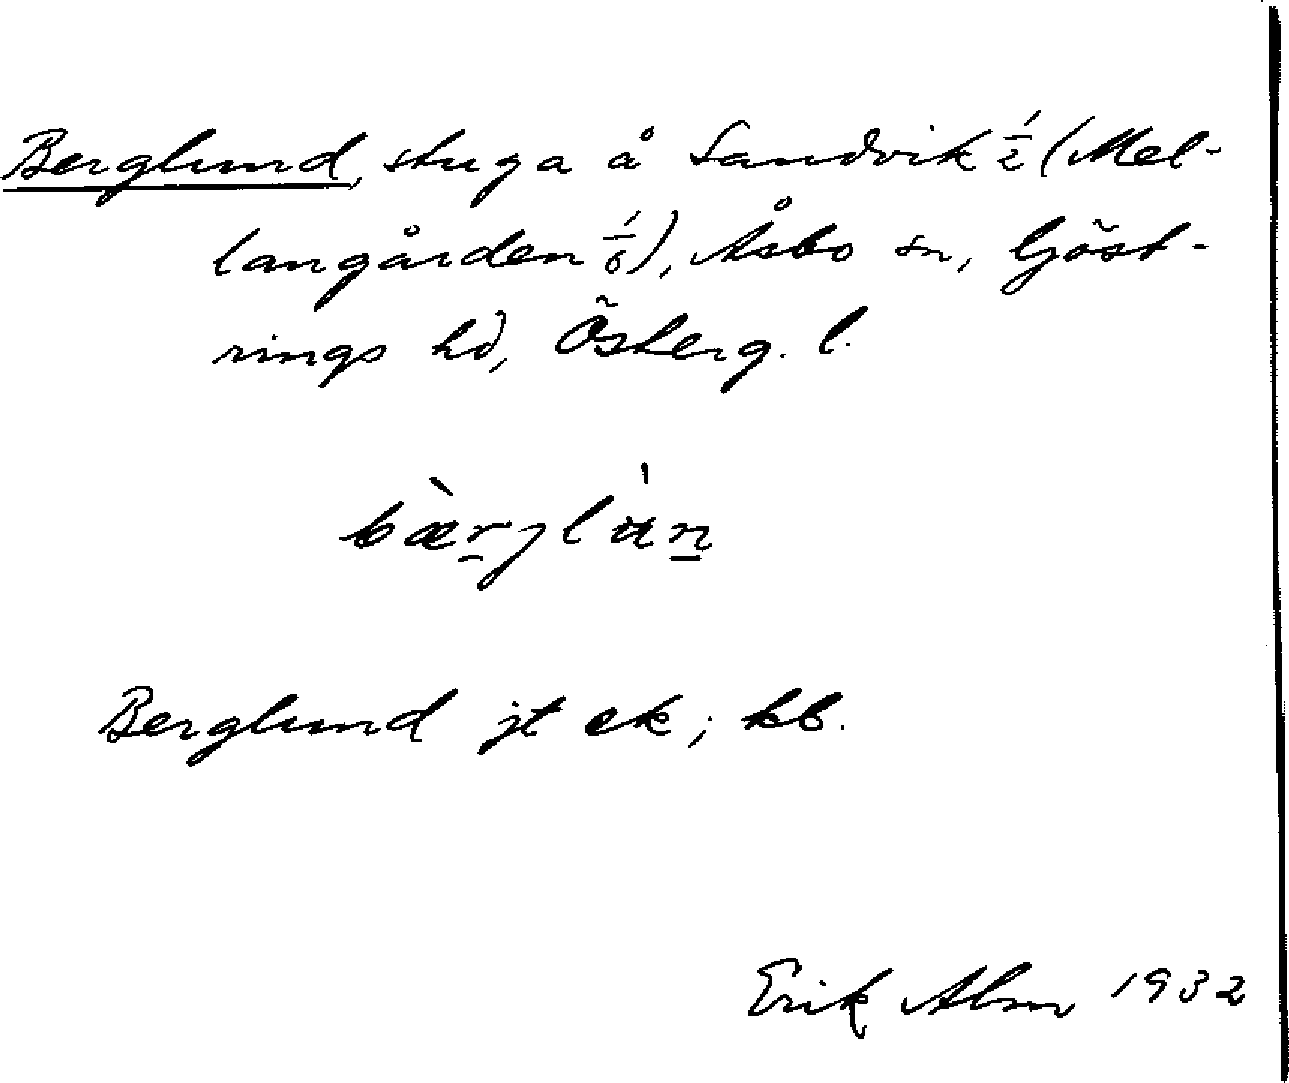 Berglund, stuga å Sandvik ½ (Mel-
langården 1/6), Åsbo sn, Göst-
rings hd, Österg. l.
bæ̀rglún
Berglund jt ek; kb.
Erik Alm 1932